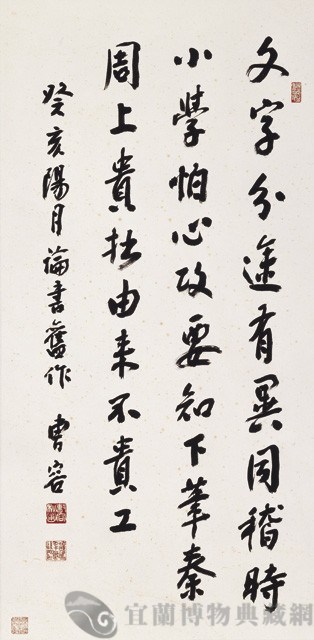 文字分途有異同稽時
小學怕心攻要知下筆秦
周上貴拙由来不貴工
癸亥陽月論書舊作 曹容
宜蘭博物典藏網